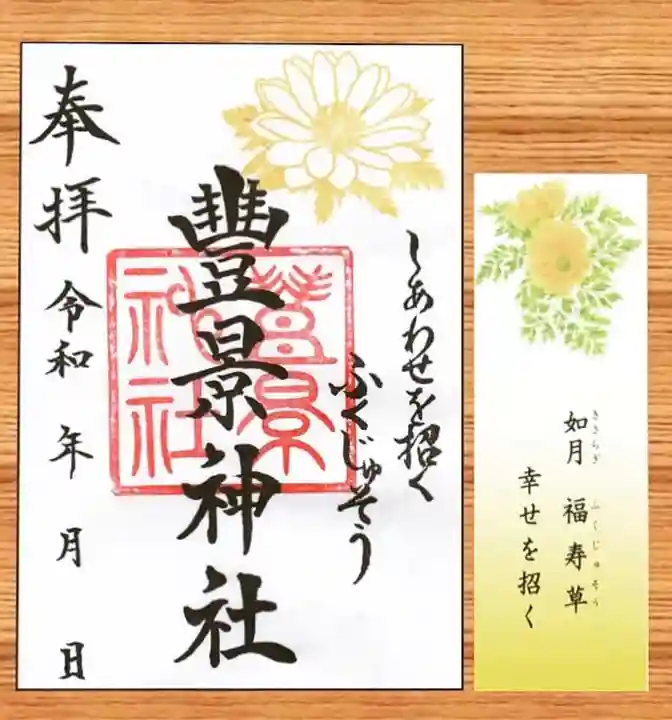 しあわせを招く
ふくじゅそう
豐景神社
豐景
神社
奉拝 令和 年 月 日
如月 福寿草
きさらぎ ふくじゅそう
幸せを招く